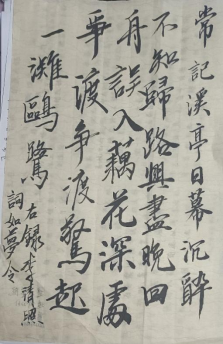 常記溪亭日暮沉醉
不知歸路興盡晚回
舟誤入藕花深處
爭渡爭渡驚起
一灘鷗鷺
右錄李清照
詞如夢令